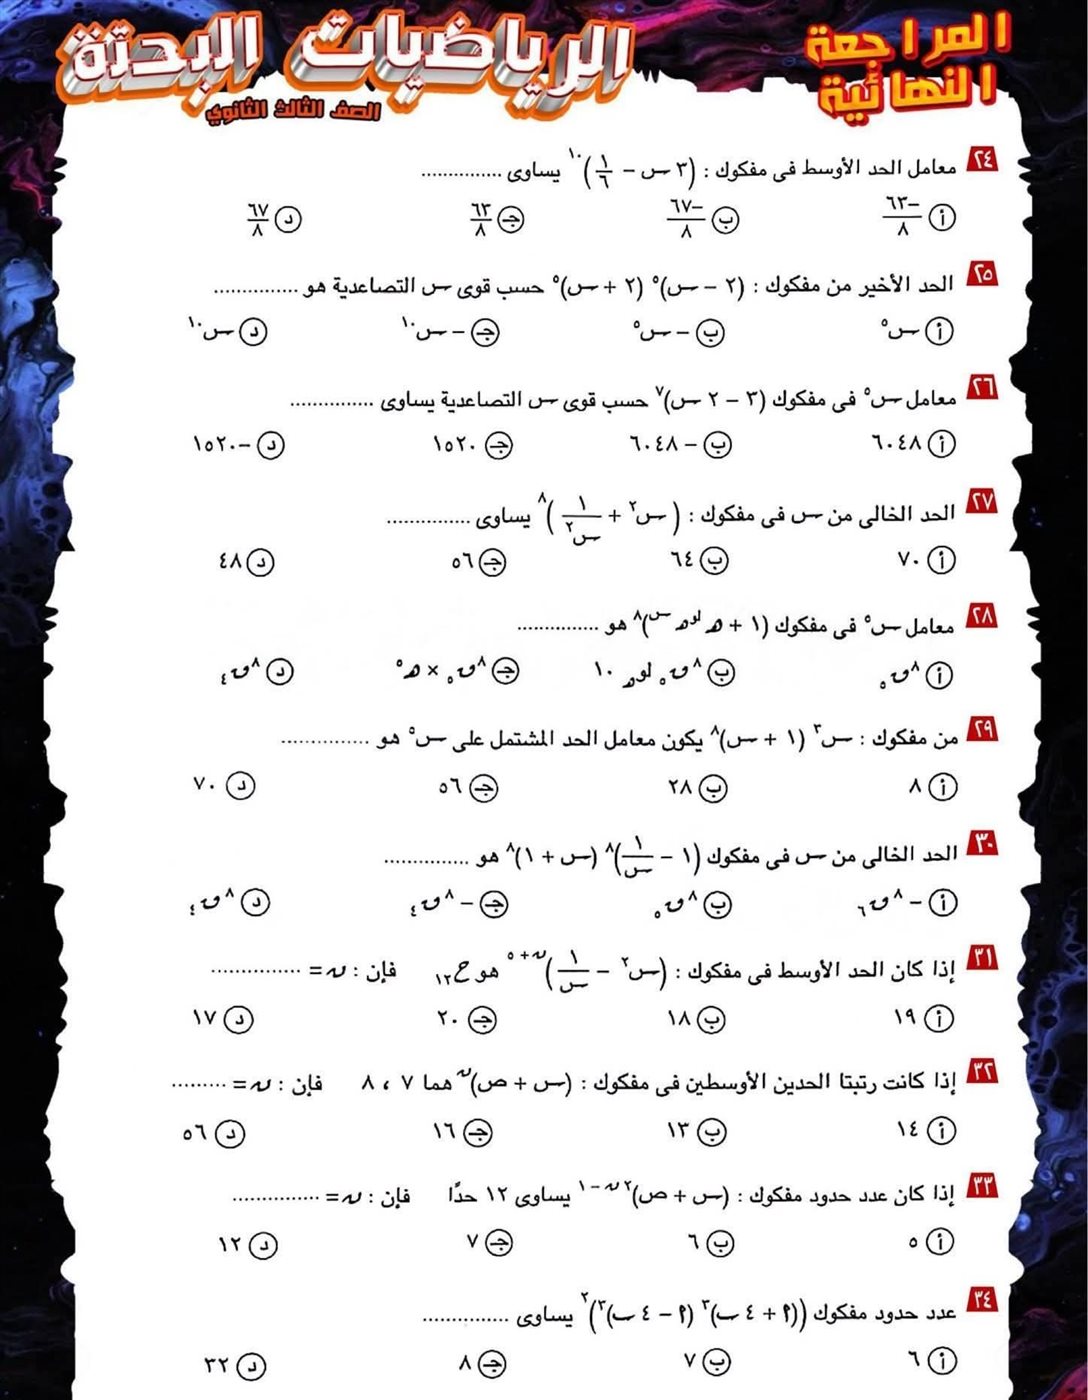 المراجعة النهائية
الرياضيات البحتة
الصف الثالث الثانوي
٢٤ معامل الحد الأوسط فى مفكوك : (٣ س − ١/٦)^١٠ يساوى ...............
أ −٦٣/٨ ب −٦٧/٨ جـ ٦٣/٨ د ٦٧/٨
٢٥ الحد الأخير من مفكوك : (٢ − س)^٥ (٢ + س)^٥ حسب قوى س التصاعدية هو ...............
أ س^٥ ب − س^٥ جـ − س^١٠ د س^١٠
٢٦ معامل س^٥ فى مفكوك (٣ − ٢ س)^٧ حسب قوى س التصاعدية يساوى ...............
أ ٦٠٤٨ ب − ٦٠٤٨ جـ ١٥٢٠ د −١٥٢٠
٢٧ الحد الخالى من س فى مفكوك : (س^٢ + ١/س^٢)^٨ يساوى ...............
أ ٧٠ ب ٦٤ جـ ٥٦ د ٤٨
٢٨ معامل س^٥ فى مفكوك (١ + هـ^(لو_هـ س))^٨ هو ...............
أ ^٨ق_٥ ب ^٨ق_٥ لو_هـ ١٠ جـ ^٨ق_٥ × هـ^٥ د ^٨ق_٤
٢٩ من مفكوك : س^٣ (١ + س)^٨ يكون معامل الحد المشتمل على س^٥ هو ...............
أ ٨ ب ٢٨ جـ ٥٦ د ٧٠
٣٠ الحد الخالى من س فى مفكوك (١ − ١/س)^٨ (س + ١)^٨ هو ...............
أ − ^٨ق_٦ ب ^٨ق_٥ جـ − ^٨ق_٤ د ^٨ق_٤
٣١ إذا كان الحد الأوسط فى مفكوك : (س^٢ − ١/س)^(ن+٥) هو ح_١٢ فإن : ن = ...............
أ ١٩ ب ١٨ جـ ٢٠ د ١٧
٣٢ إذا كانت رتبتا الحدين الأوسطين فى مفكوك : (س + ص)^ن هما ٧ ، ٨ فإن : ن = .........
أ ١٤ ب ١٣ جـ ١٦ د ٥٦
٣٣ إذا كان عدد حدود مفكوك : (س + ص)^(٢ن−١) يساوى ١٢ حدًا فإن : ن = ...............
أ ٥ ب ٦ جـ ٧ د ١٢
٣٤ عدد حدود مفكوك ((أ + ٤ ب)^٣ (أ − ٤ ب)^٣)^٢ يساوى ...............
أ ٦ ب ٧ جـ ٨ د ٣٢